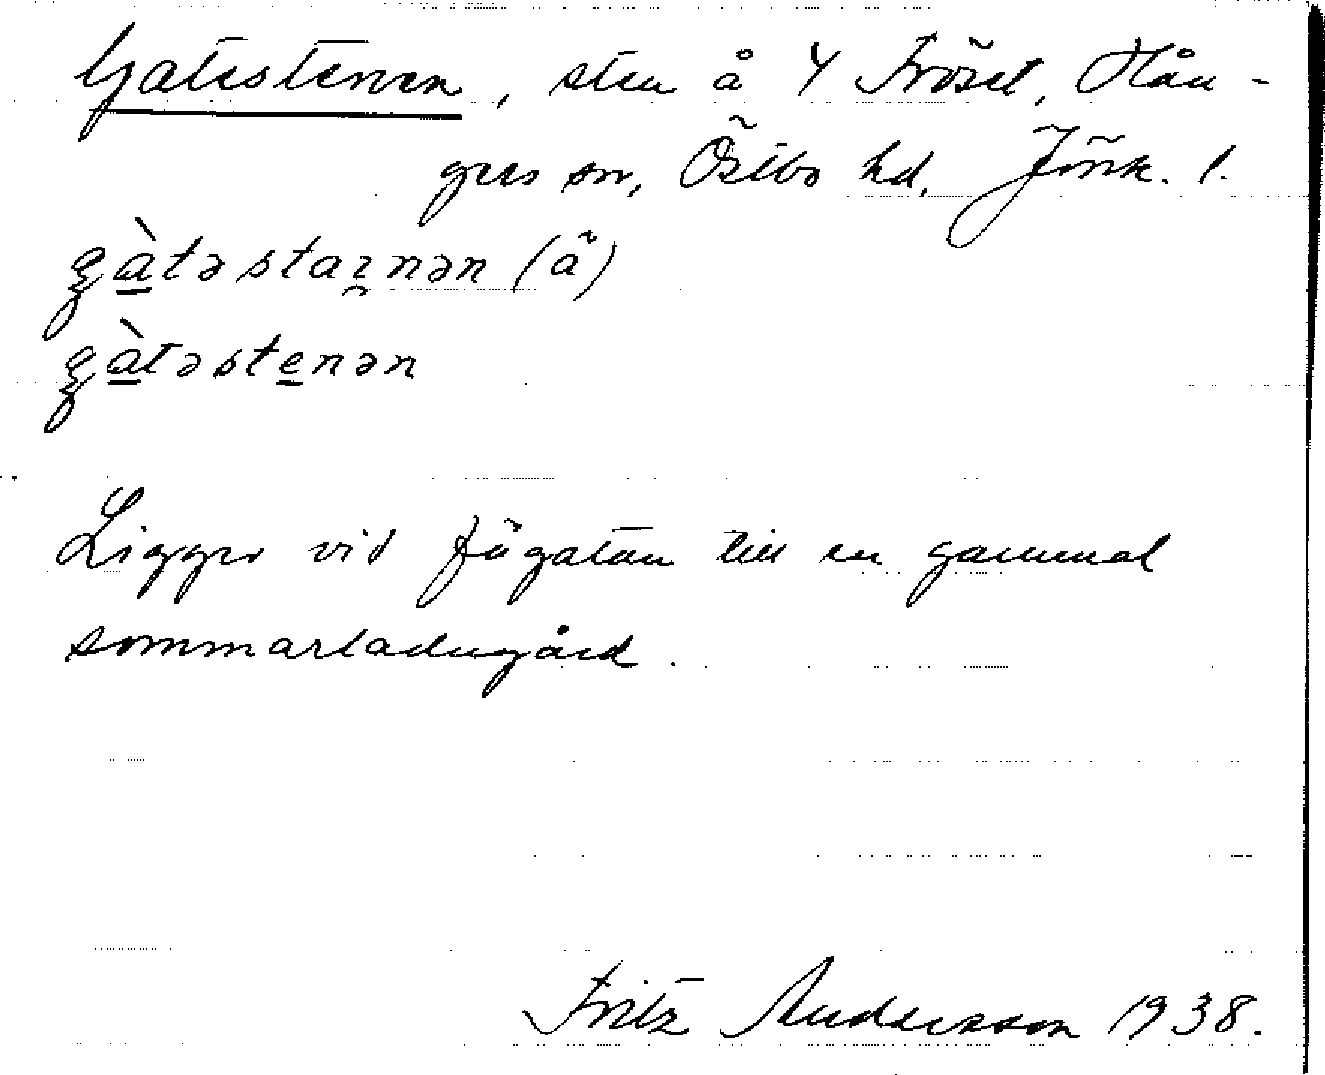 Gatestenen, sten å Y Trösel, Hån-
gers sn, Östbo hd, Jönk. l.
gàtəstaı̯nən (å̃)
gàtəstenən
Ligger vid fägatan till en gammal
sommarladugård.
Fritz Andersson 1938.